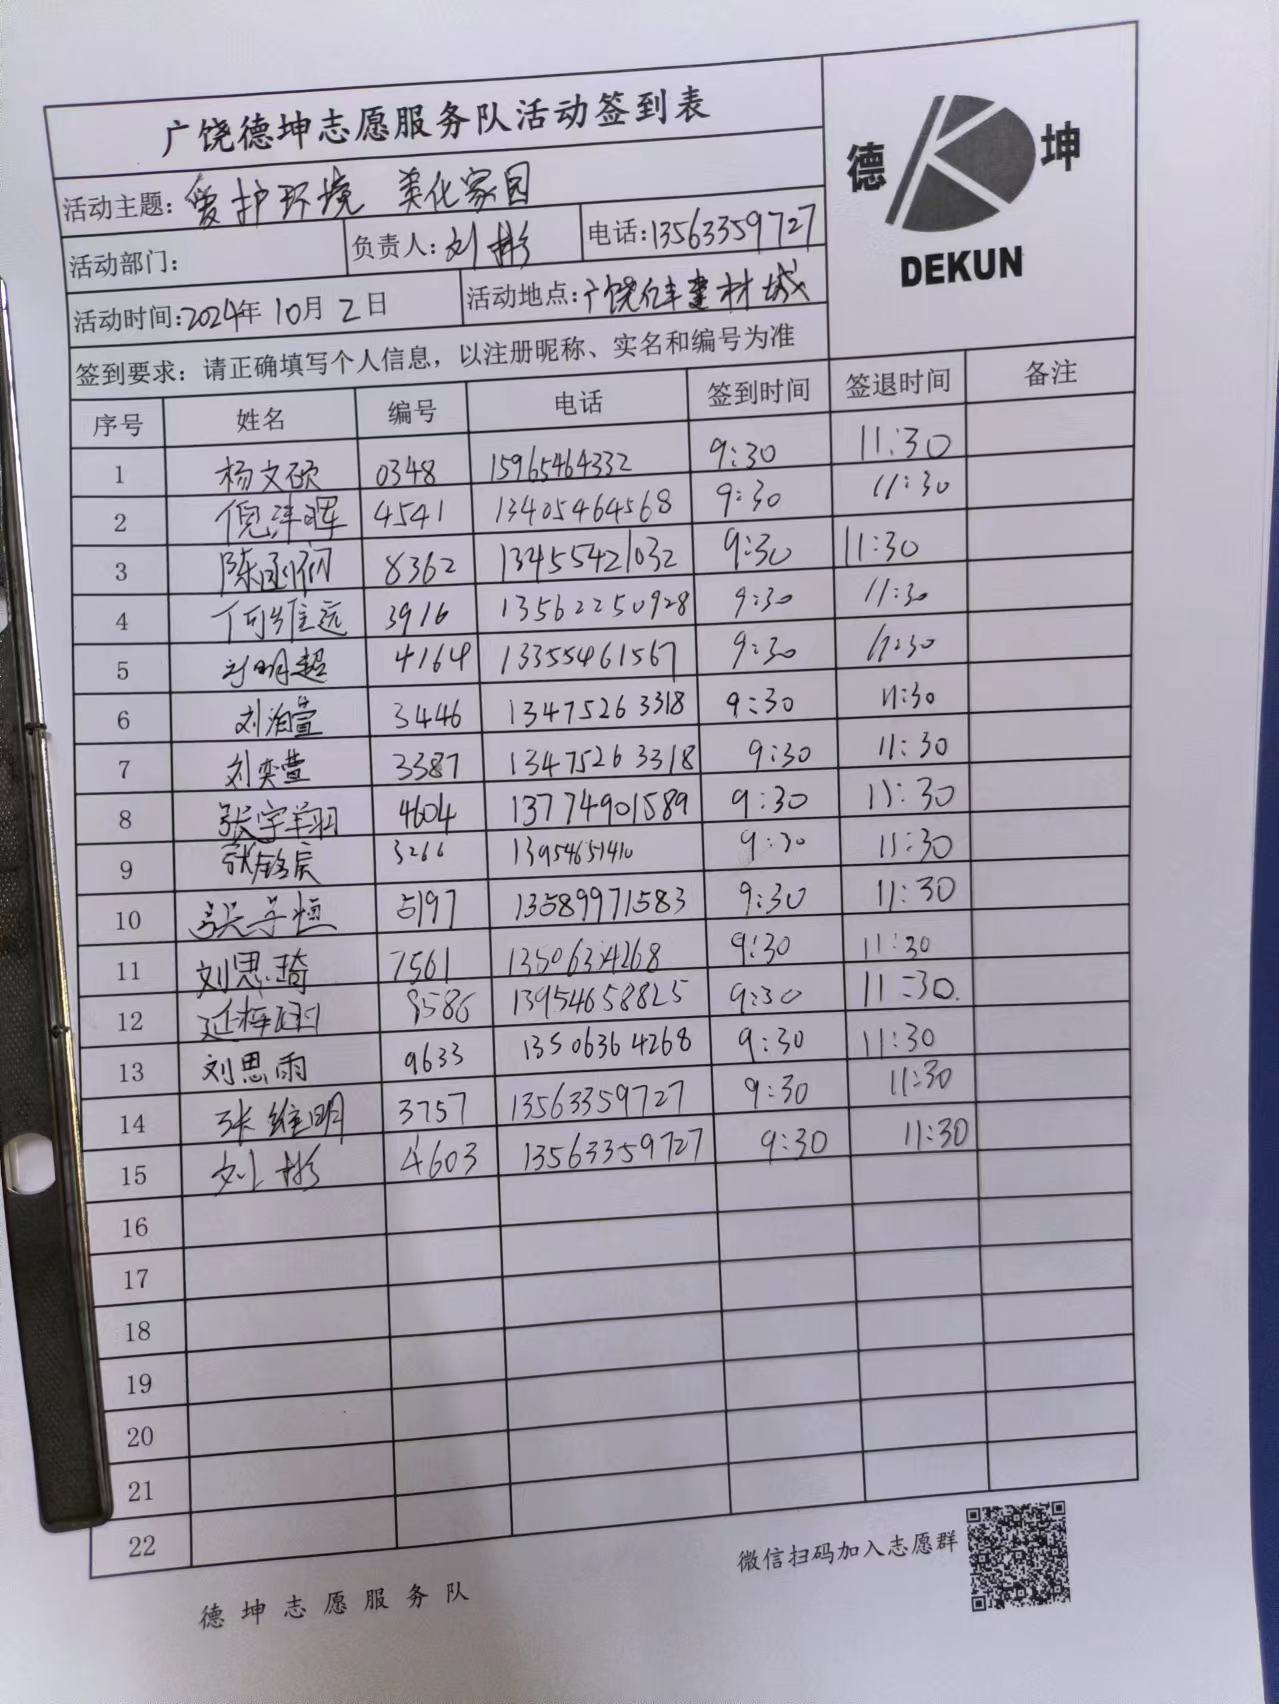 广饶德坤志愿服务队活动签到表
德 坤
DEKUN
活动主题：爱护环境 美化家园
活动部门： 负责人：刘彬 电话：13563359727
活动时间：2024年10月2日 活动地点：广饶亿丰建材城
签到要求：请正确填写个人信息，以注册昵称、实名和编号为准
序号 姓名 编号 电话 签到时间 签退时间 备注
1 杨文硕 0348 15965464332 9:30 11:30
2 倪沣晖 4541 13405464568 9:30 11:30
3 陈 8362 13455421032 9:30 11:30
4 何维远 3916 13562250928 9:30 11:30
5 刘明超 4164 13355461567 9:30 11:30
6 刘洎萱 3446 13475263318 9:30 11:30
7 刘奕萱 3387 13475263318 9:30 11:30
8 张宇翔 4604 13774901589 9:30 11:30
9 张铭宸 3266 13954651410 9:30 11:30
10 张子恒 5197 13589971583 9:30 11:30
11 刘思琦 7561 13506364268 9:30 11:30
12 延梓 8586 13954658825 9:30 11:30
13 刘思雨 9633 13506364268 9:30 11:30
14 张维明 3757 13563359727 9:30 11:30
15 刘彬 4603 13563359727 9:30 11:30
16
17
18
19
20
21
22
微信扫码加入志愿群
德坤志愿服务队